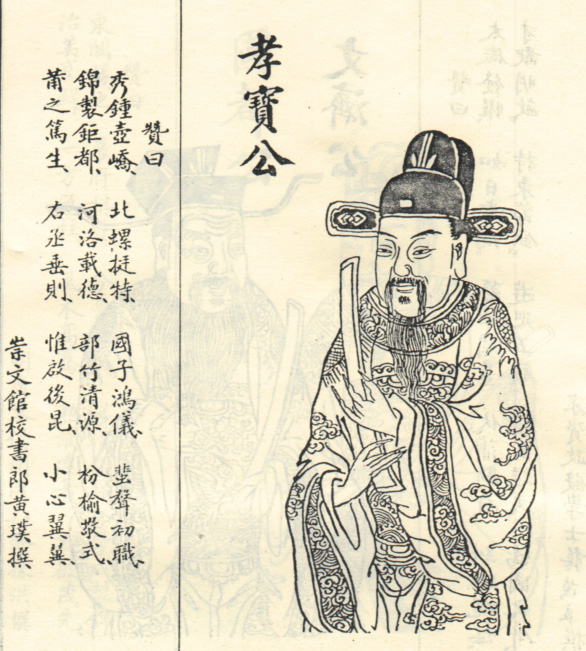 孝寶公
贊曰
秀鍾壺嶠、北螺挺特、國子鴻儀、蜚聲初職、
錦製鉅都、河洛載德、部竹清源、枌榆敬式、
莆之篤生、右丞垂則、惟啟後昆、小心翼翼
崇文館校書郎黃璞撰